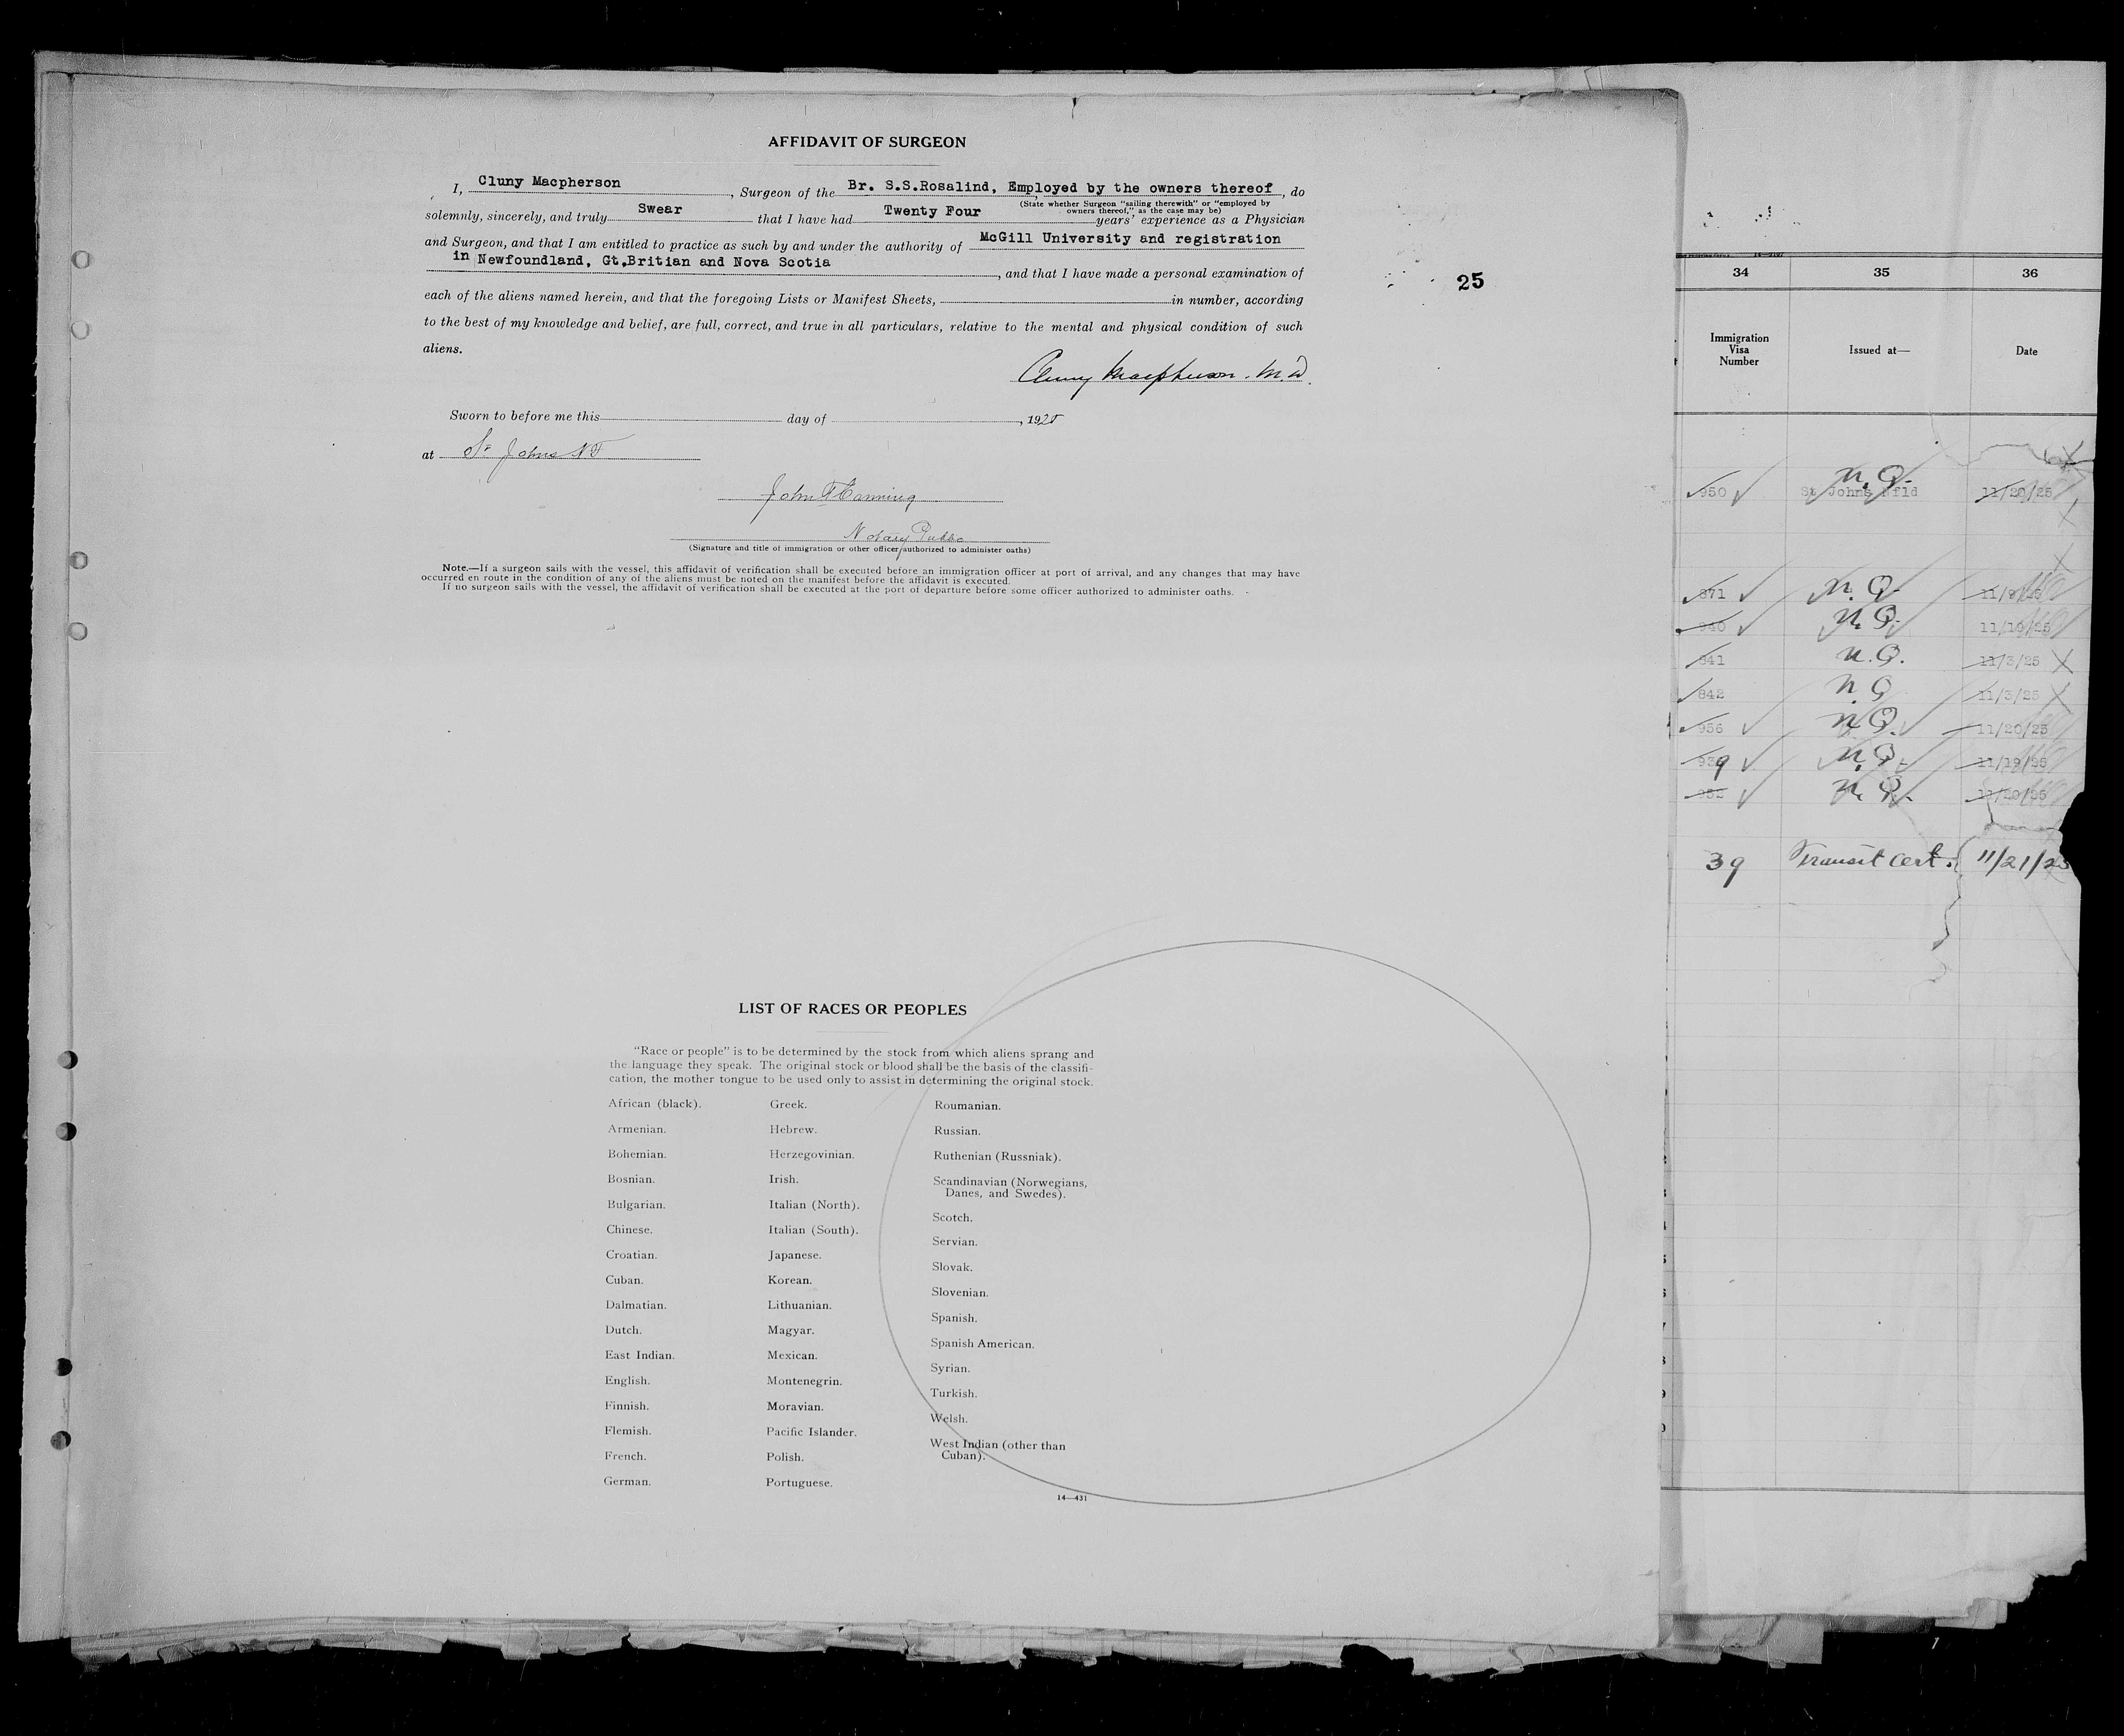 AFFIDAVIT OF SURGEON
I, Cluny Macpherson, Surgeon of the Br. S.S.Rosalind, Employed by the owners thereof, do
(State whether Surgeon "sailing therewith" or "employed by
owners thereof," as the case may be)
solemnly, sincerely, and truly Swear that I have had Twenty Four years' experience as a Physician
and Surgeon, and that I am entitled to practice as such by and under the authority of McGill University and registration
in Newfoundland, Gt.Britian and Nova Scotia, and that I have made a personal examination of
each of the aliens named herein, and that the foregoing Lists or Manifest Sheets, in number, according
to the best of my knowledge and belief, are full, correct, and true in all particulars, relative to the mental and physical condition of such
aliens.
Cluny Macpherson. M.D.
Sworn to before me this day of , 1925
at St Johns NF
John Canning
Notary Public
(Signature and title of immigration or other officer authorized to administer oaths)
Note.—If a surgeon sails with the vessel, this affidavit of verification shall be executed before an immigration officer at port of arrival, and any changes that may have
occurred en route in the condition of any of the aliens must be noted on the manifest before the affidavit is executed.
If no surgeon sails with the vessel, the affidavit of verification shall be executed at the port of departure before some officer authorized to administer oaths.
25
LIST OF RACES OR PEOPLES
"Race or people" is to be determined by the stock from which aliens sprang and
the language they speak. The original stock or blood shall be the basis of the classifi-
cation, the mother tongue to be used only to assist in determining the original stock.
African (black).
Armenian.
Bohemian.
Bosnian.
Bulgarian.
Chinese.
Croatian.
Cuban.
Dalmatian.
Dutch.
East Indian.
English.
Finnish.
Flemish.
French.
German.
Greek.
Hebrew.
Herzegovinian.
Irish.
Italian (North).
Italian (South).
Japanese.
Korean.
Lithuanian.
Magyar.
Mexican.
Montenegrin.
Moravian.
Pacific Islander.
Polish.
Portuguese.
Roumanian.
Russian.
Ruthenian (Russniak).
Scandinavian (Norwegians,
Danes, and Swedes).
Scotch.
Servian.
Slovak.
Slovenian.
Spanish.
Spanish American.
Syrian.
Turkish.
Welsh.
West Indian (other than
Cuban).
14—431
34 35 36
Immigration
Visa
Number
Issued at—
Date
N.Q.
950 St Johns Nfld 11/20/25
871 N.Q. 11/9/25
940 N.Q. 11/19/25
841 N.Q. 11/3/25
842 N.Q. 11/3/25
956 N.Q. 11/20/25
939 N.Q. 11/19/25
952 N.Q. 11/20/25
39 Transit Cert. 11/21/25